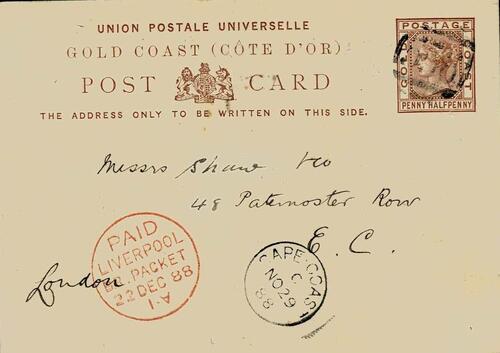 UNION POSTALE UNIVERSELLE
GOLD COAST (CÔTE D'OR)
POST CARD
THE ADDRESS ONLY TO BE WRITTEN ON THIS SIDE.
POSTAGE
GOLD COAST
PENNY HALFPENNY
Messrs Shaw & Co
48 Paternoster Row
E. C.
London
PAID
LIVERPOOL
BR. PACKET
22 DEC 88
1·A
CAPE-COAST
C
NO 29
88